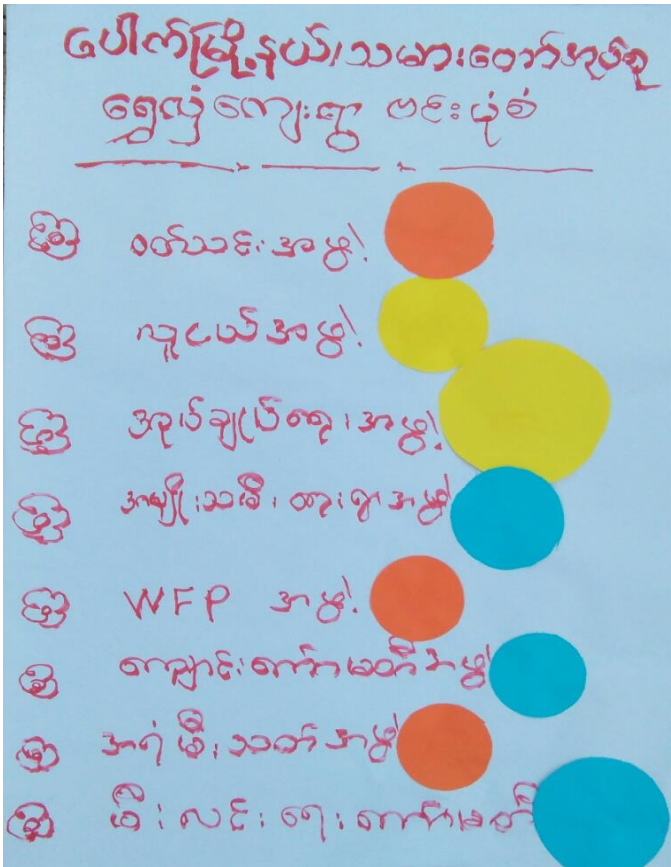 ပေါက်မြို့နယ်၊သမားတော်အုပ်စု
ရွှေလှံကျေးရွာ ဗင်းပုံစံ
ဝတ်သင်းအဖွဲ့
လူငယ်အဖွဲ့
အုပ်ချုပ်ရေးအဖွဲ့
အမျိုးသမီးထားရာအဖွဲ့
WFP အဖွဲ့
ကျောင်းကော်မတီအဖွဲ့
အရံမီးသတ်အဖွဲ့
မီးလင်းရေးကော်မတီ